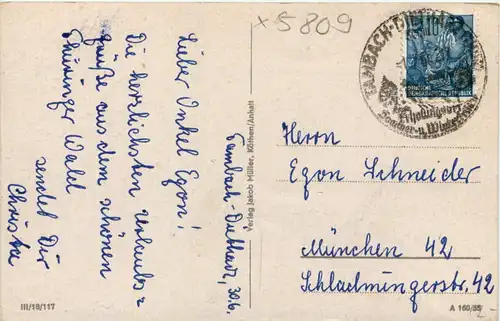 x 5809
Tambach-Dietharz, 30.6.
Lieber Onkel Egon!
Die herzlichsten Urlaubs=
grüße aus dem schönen
Thüringer Wald
sendet Dir
Christa
III/18/117
Verlag Jakob Müller, Köthen/Anhalt
TAMBACH-DIETHARZ
Erholungsort
Sommer- u. Wintersport
DEUTSCHE
DEMOKRATISCHE REPUBLIK
Herrn
Egon Schneider
München 42
Schladmingerstr. 42
A 160/55